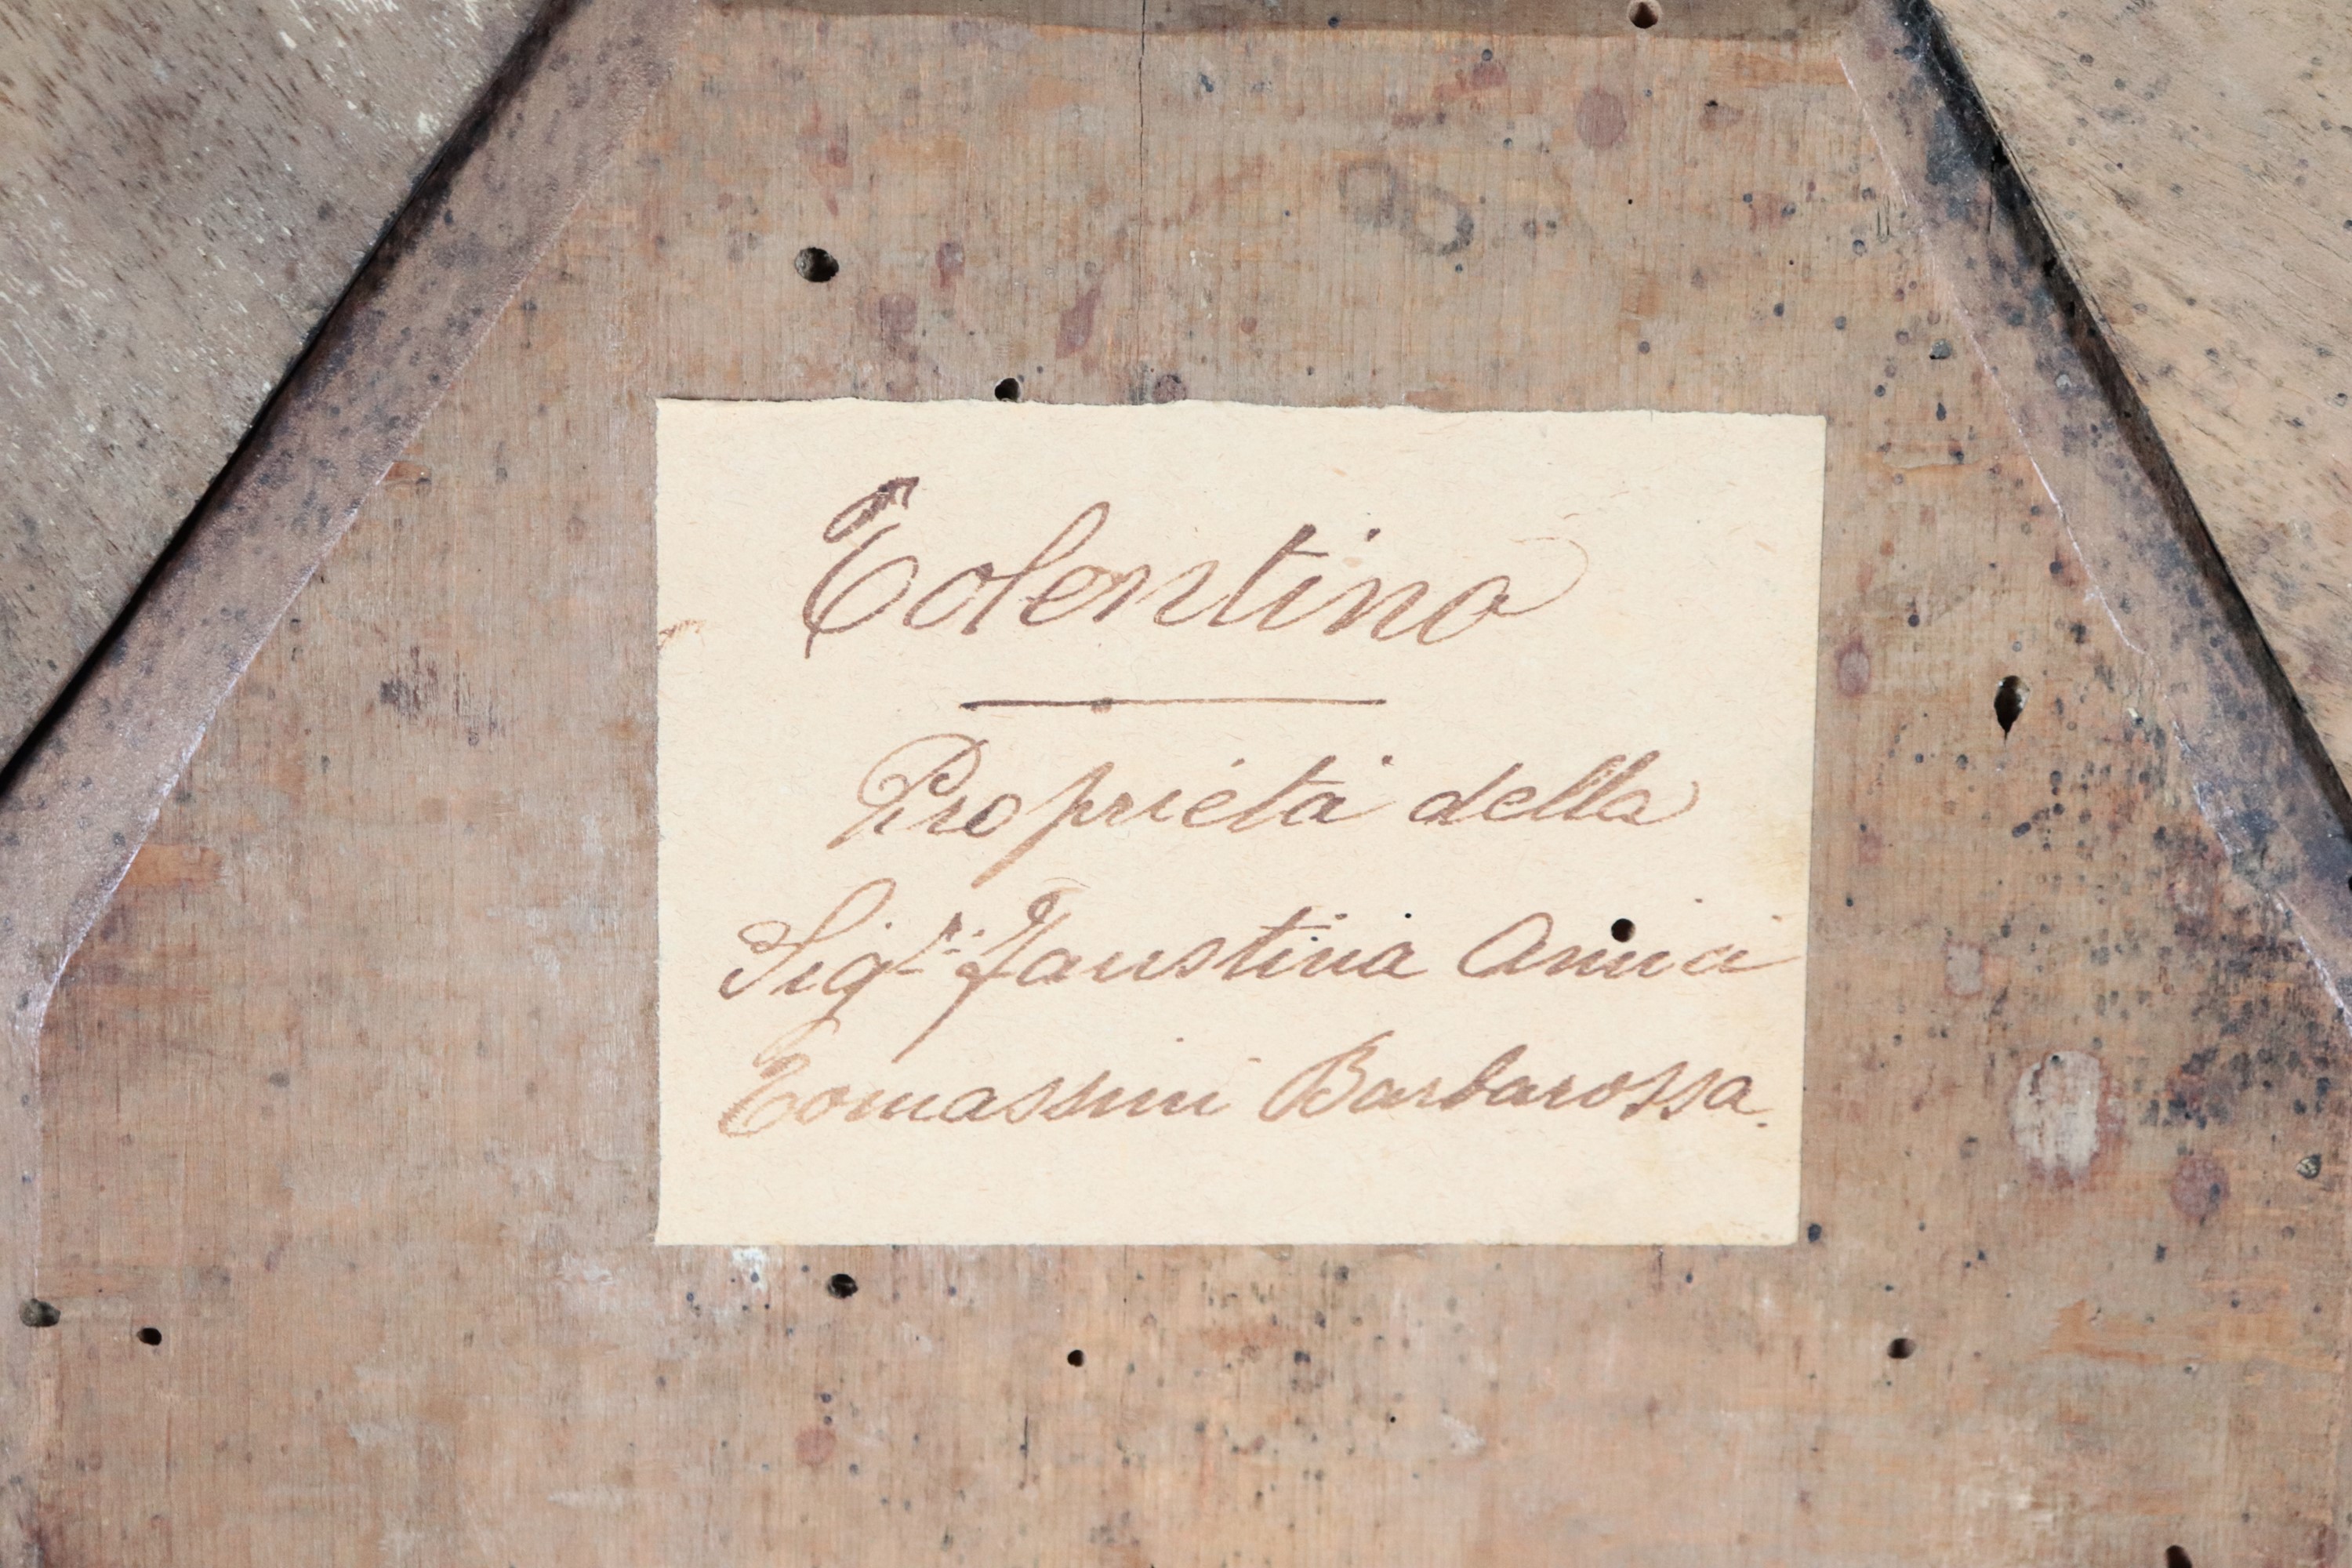 Tolentino
Proprietà della
Sigra Faustina
Tomassini Barbarossa.